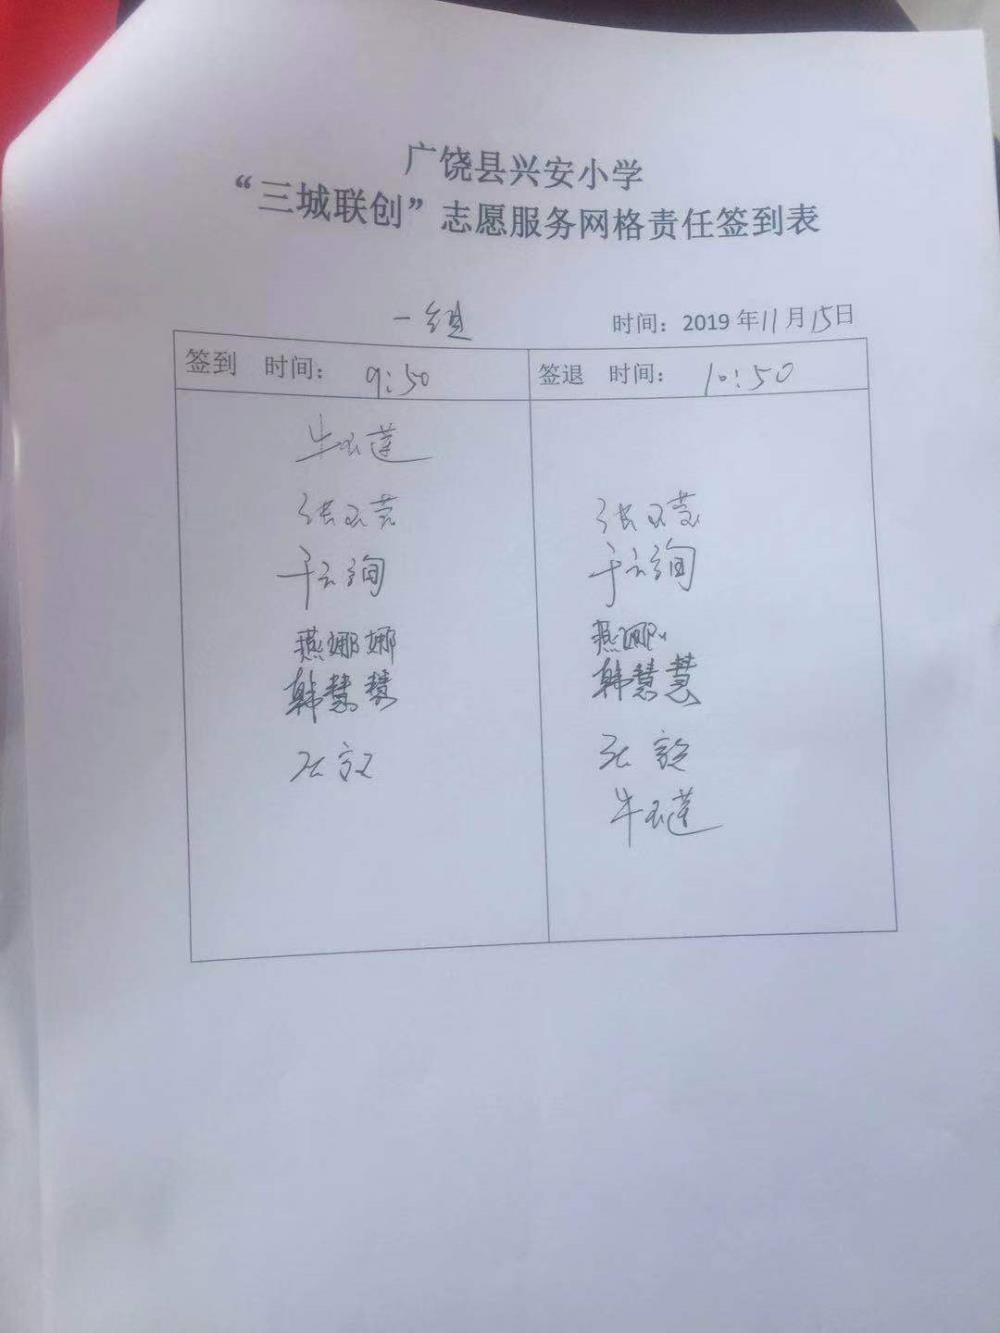 广饶县兴安小学
“三城联创”志愿服务网格责任签到表
一组
时间：2019年11月15日
签到 时间： 9:50
签退 时间： 10:50
牛玉莲
张玉芸
张玉芸
于云绚
于云绚
燕娜娜
燕娜
韩慧慧
韩慧慧
张
张
牛玉莲